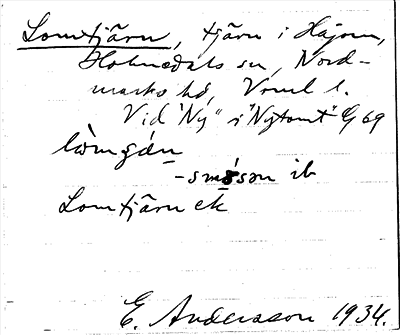 Lomtjärn, tjärn i Häjom,
Holmedals sn, Nord-
marks hd, Vrml l.
Vid "Ny" i "Nytomt" G 69
-småsen ib
Lomtjärn ek
E. Andersson 1934.